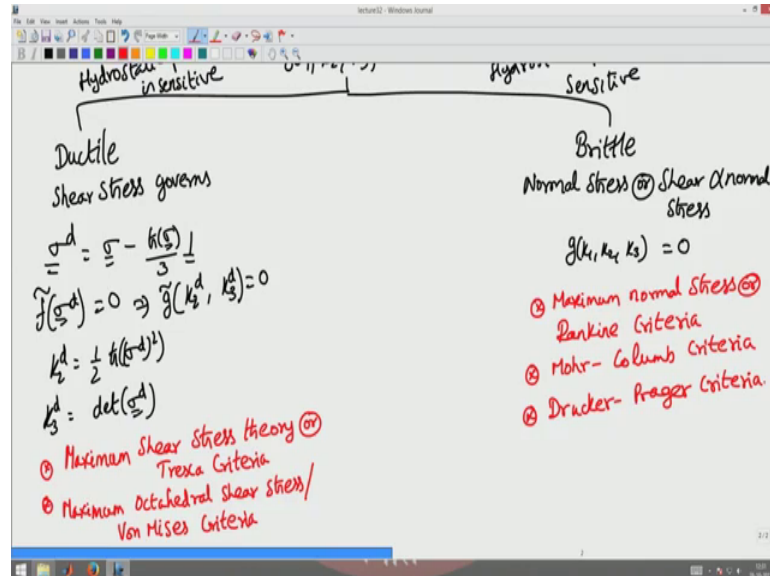 lecture32 - Windows Journal
File Edit View Insert Actions Tools Help
Page Width
B I
insensitive
Sensitive
Ductile
Shear Stress governs
σ^d = σ - tr(σ)/3 1
f̃(σ^d) = 0 ⇒ g̃(K₂^d, K₃^d) = 0
K₂^d = 1/2 tr((σ^d)²)
K₃^d = det(σ^d)
⊗ Maximum Shear Stress theory or
Tresca Criteria
⊗ Maximum Octahedral Shear Stress/
Von Mises Criteria
Brittle
Normal Stress or Shear & normal
Stress
g(K₁, K₂, K₃) = 0
⊗ Maximum normal Stress or
Rankine Criteria
⊗ Mohr- Columb Criteria
⊗ Drucker- Prager Criteria.
2/2